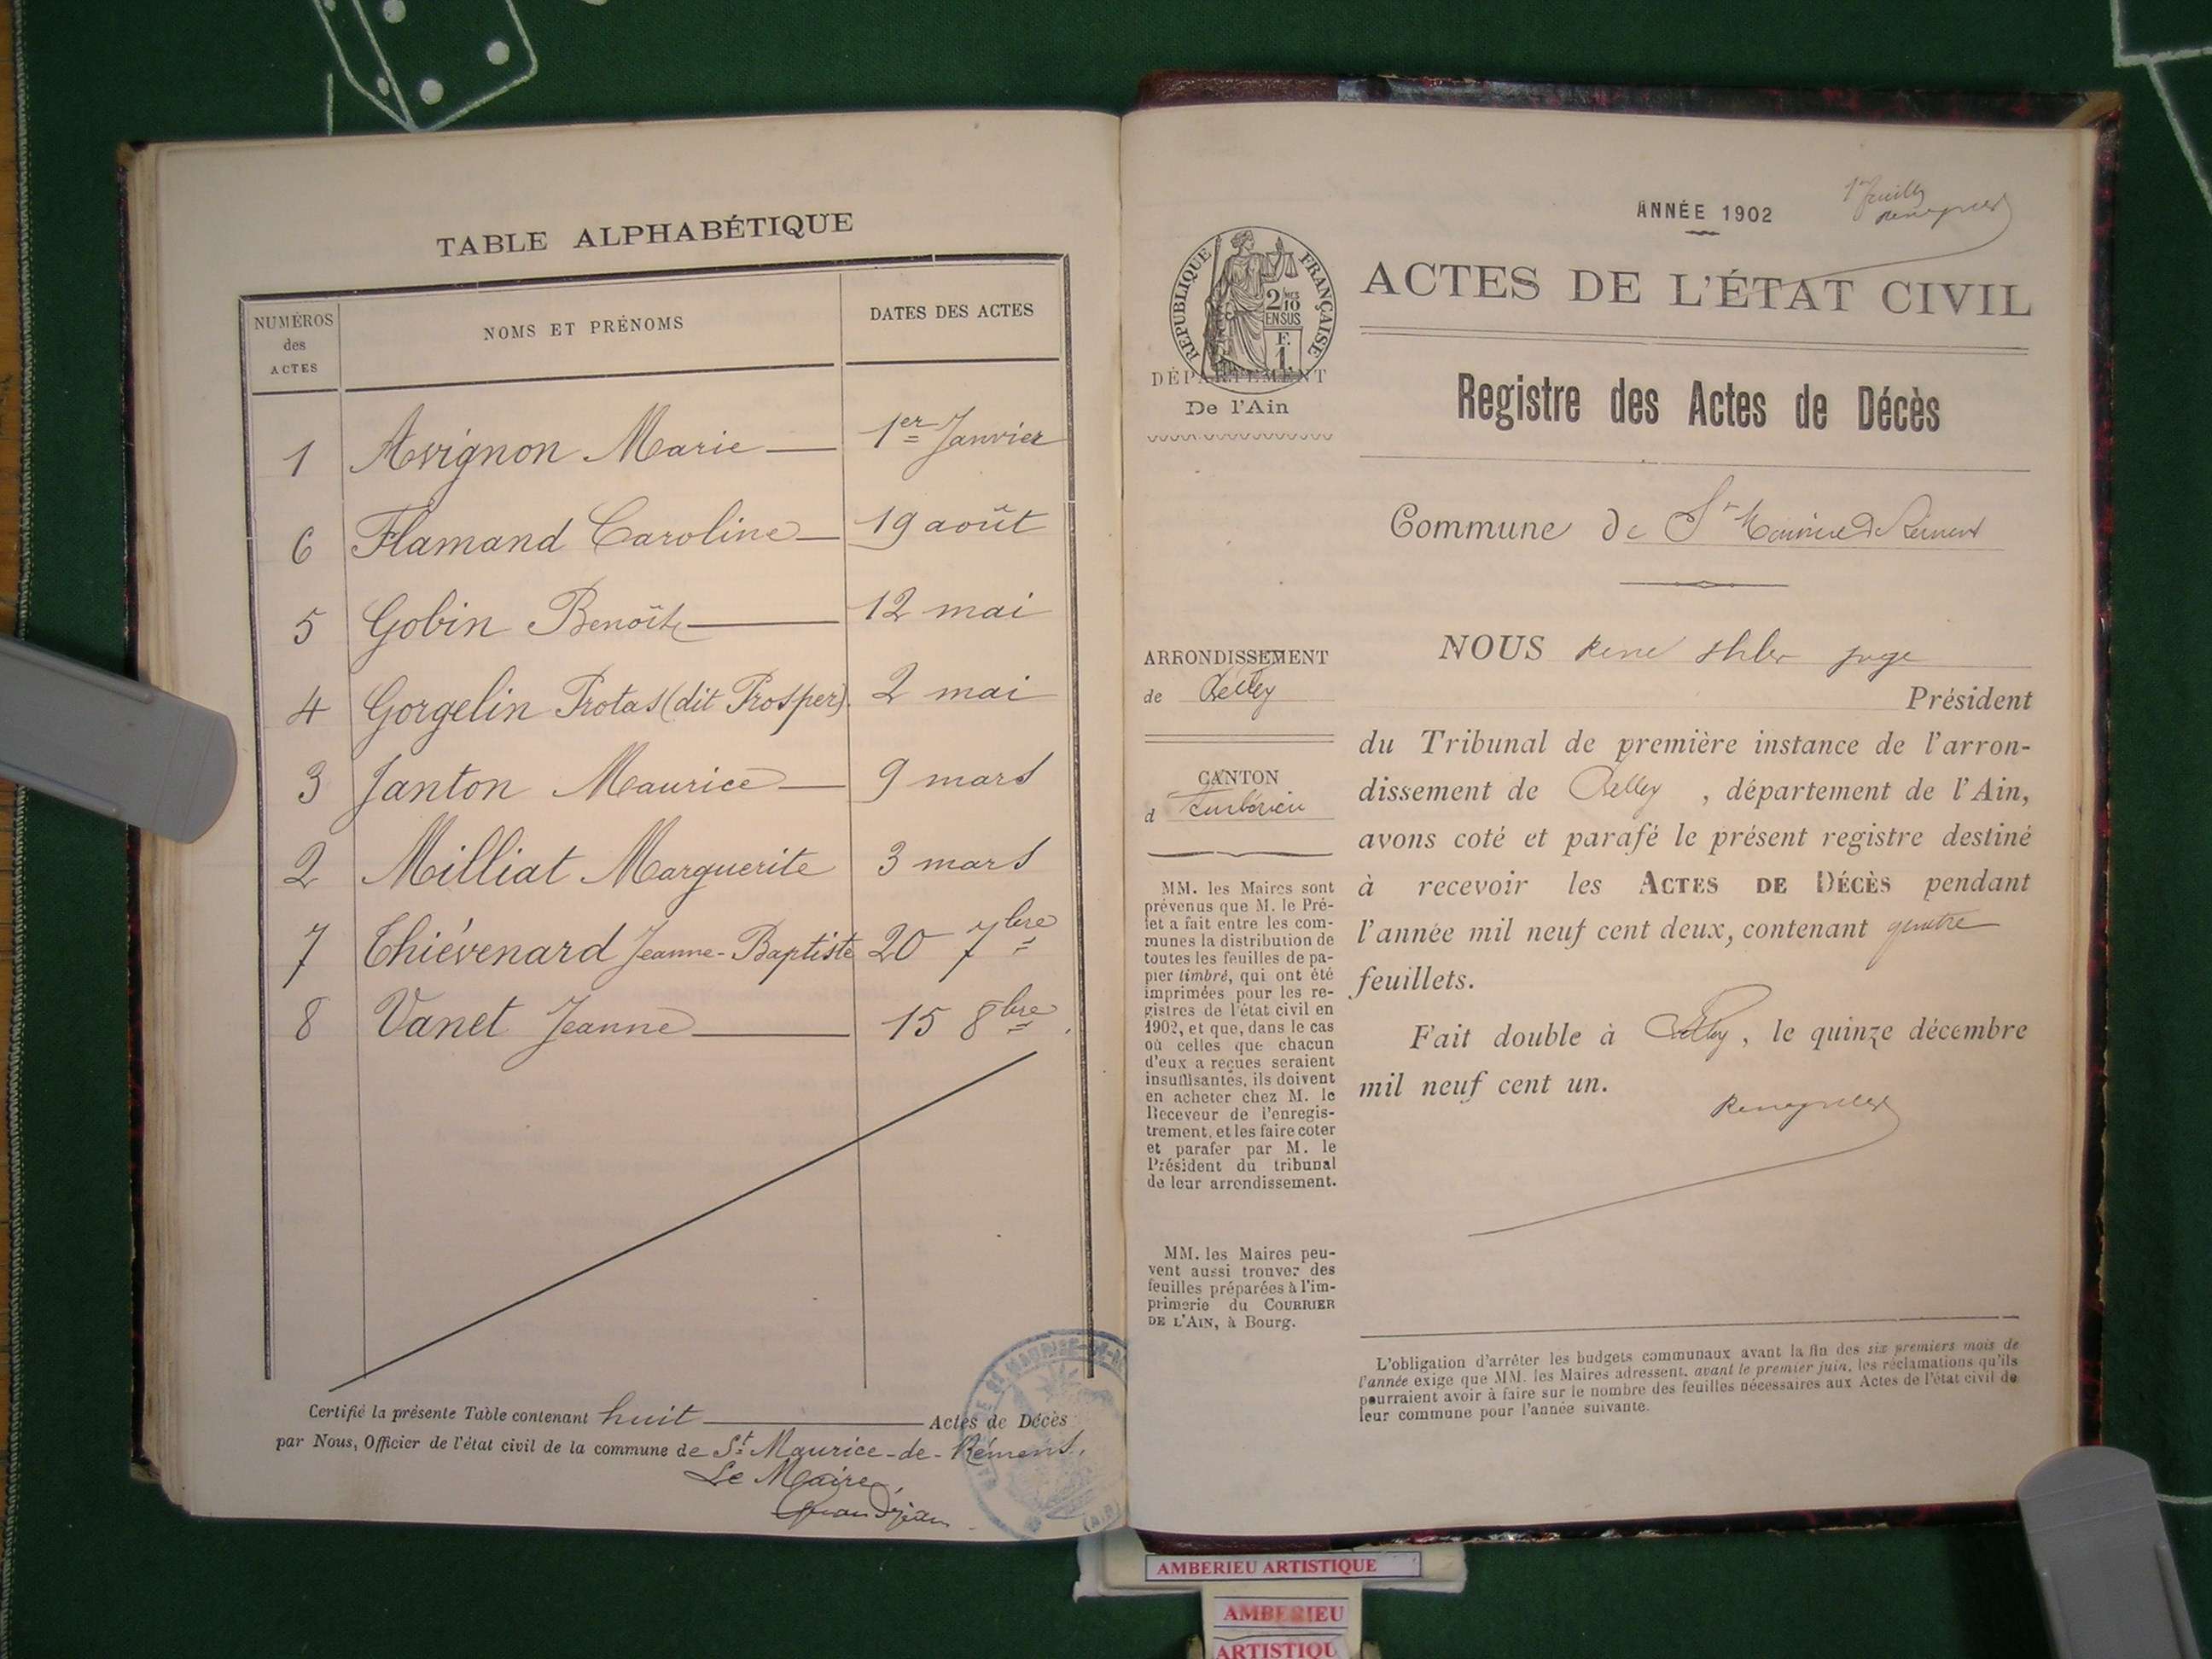 TABLE ALPHABÉTIQUE
NUMÉROS des ACTES
NOMS ET PRÉNOMS
DATES DES ACTES
1 Avignon Marie 1er Janvier
6 Flamand Caroline 19 août
5 Gobin Benoîte 12 mai
4 Gorgelin Protas (dit Prosper) 2 mai
3 Janton Maurice 9 mars
2 Milliat Marguerite 3 mars
7 Thiévenard Jeanne-Baptiste 20 7bre
8 Vanet Jeanne 15 8bre
Certifié la présente Table contenant huit Actes de Décès
par Nous, Officier de l'état civil de la commune de St Maurice-de-Rémens,
Le Maire,
ANNÉE 1902
1er feuillet
RÉPUBLIQUE FRANÇAISE
2/10MES
EN SUS
F.
1.
DÉPARTEMENT
De l'Ain
ACTES DE L'ÉTAT CIVIL
Registre des Actes de Décès
Commune de St Maurice de Rémens
ARRONDISSEMENT
de Belley
CANTON
d Ambérieu
MM. les Maires sont
prévenus que M. le Pré-
fet a fait entre les com-
munes la distribution de
toutes les feuilles de pa-
pier timbré, qui ont été
imprimées pour les re-
gistres de l'état civil en
1902, et que, dans le cas
où celles que chacun
d'eux a reçues seraient
insuffisantes, ils doivent
en acheter chez M. le
Receveur de l'enregis-
trement, et les faire coter
et parafer par M. le
Président du tribunal
de leur arrondissement.
MM. les Maires peu-
vent aussi trouver des
feuilles préparées à l'im-
primerie du COURRIER
DE L'AIN, à Bourg.
NOUS René juge
Président
du Tribunal de première instance de l'arron-
dissement de Belley, département de l'Ain,
avons coté et parafé le présent registre destiné
à recevoir les ACTES DE DÉCÈS pendant
l'année mil neuf cent deux, contenant quatre
feuillets.
Fait double à Belley, le quinze décembre
mil neuf cent un.
L'obligation d'arrêter les budgets communaux avant la fin des six premiers mois de
l'année exige que MM. les Maires adressent, avant le premier juin, les réclamations qu'ils
pourraient avoir à faire sur le nombre des feuilles nécessaires aux Actes de l'état civil de
leur commune pour l'année suivante.
AMBERIEU ARTISTIQUE
AMBERIEU
ARTISTIQU